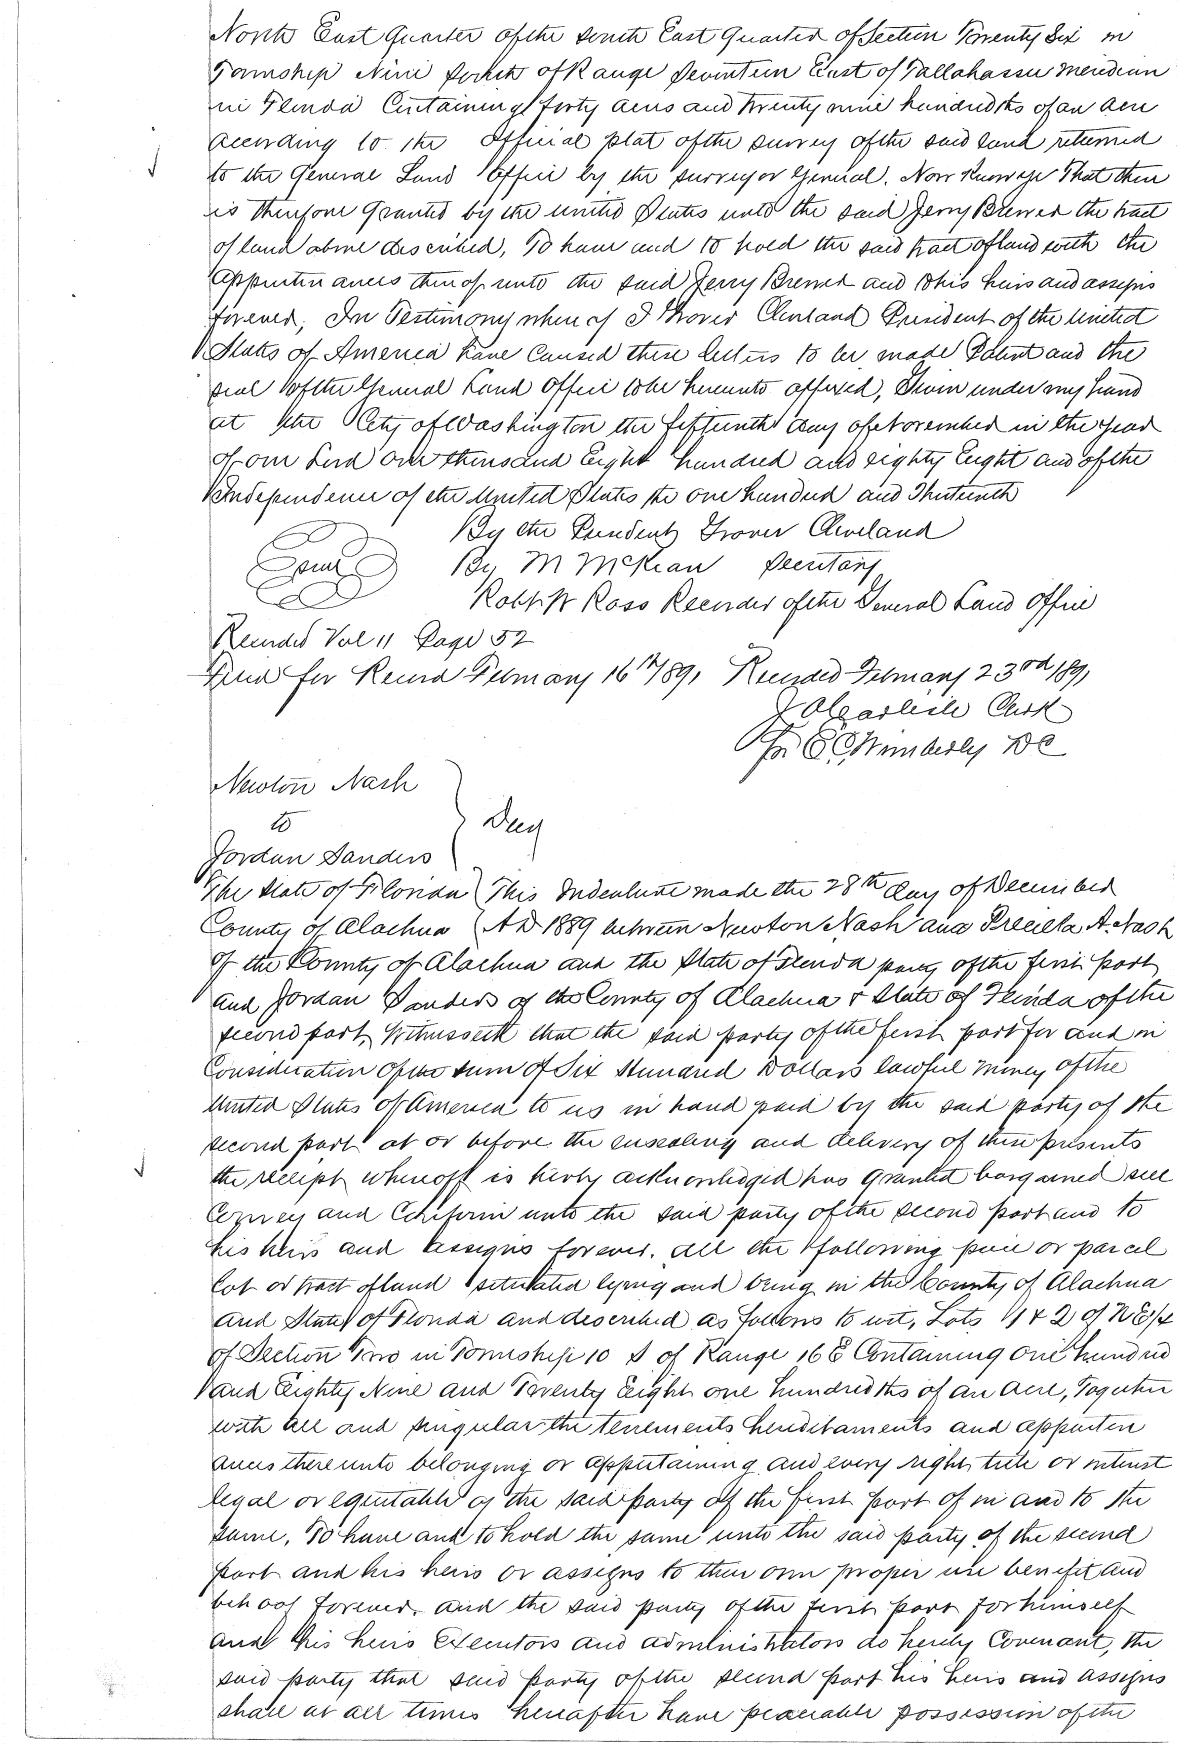 North East Quarter of the South East Quarter of Section Twenty Six in
Township Nine South of Range Seventeen East of Tallahassee Meridian
in Florida Containing forty acres and twenty nine hundredths of an acre
according to the official plat of the survey of the said land returned
to the General Land Office by the Surveyor General. Now Know ye That there
is therefore Granted by the United States unto the said Jerry Brewer the tract
of land above described, To have and to hold the said tract of land with the
appurtenances thereof unto the said Jerry Brewer and to his heirs and assigns
forever, In Testimony where of I Grover Cleveland President of the United
States of America have caused these letters to be made Patent and the
seal of the General Land Office to be hereunto affixed, Given under my hand
at the City of Washington the fifteenth day of November in the year
of our Lord one thousand Eight hundred and eighty Eight and of the
Independence of the United States the one hundred and Thirteenth
By the President Grover Cleveland
Seal
By M McKean Secretary
Robt W Ross Recorder of the General Land Office
Recorded Vol 11 Page 52
Filed for Record February 16th/89, Recorded February 23rd/89,
J A Carlisle Clerk
Per E C Wimberly DC
Newton Nash
to
Deed
Jordan Sanders
The State of Florida } This Indenture made the 28th day of December
County of Alachua } AD 1889 between Newton Nash and Precilla A. Nash
of the County of Alachua and the State of Florida party of the first part
and Jordan Sanders of the County of Alachua & State of Florida of the
second part Witnesseth that the said party of the first part for and in
Consideration of the sum of Six Hundred Dollars lawful money of the
United States of America to us in hand paid by the said party of the
second part at or before the ensealing and delivery of these presents
the receipt whereoff is herby acknowledged has granted bargained sell
Convey and Confirm unto the said party of the second part and to
his heirs and assigns forever. all the following piece or parcel
Lot or tract of land situated lying and being in the County of Alachua
and State of Florida and described as follows to wit, Lots 1 & 2 of NE1/4
of Section Two in Township 10 S of Range 16 E Containing one hundred
and Eighty Nine and Twenty Eight one hundredths of an acre, Together
with all and singular the tenements hereditaments and appurten
ances thereunto belonging or appertaining and every right title or interest
legal or equitable of the said party of the first part of in and to the
same, To have and to hold the same unto the said party of the second
part and his heirs or assigns to their own proper use benefit and
behoof forever. and the said party of the first part for himself
and his heirs Executors and administrators do hereby Covenant, the
said party that said party of the second part his heirs and assigns
shall at all times hereafter have peaceable possession of the